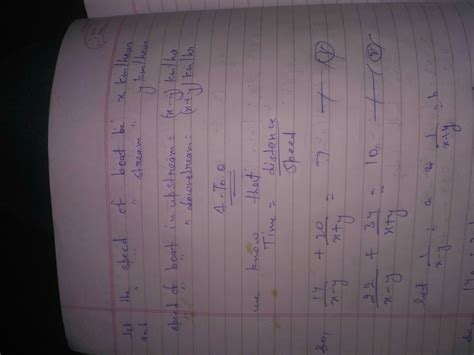 let the speed of boat be x km/hours
and " " " stream " y km/hour
speed of boat in upstream = (x-y) km/hr
" " " " downstream = (x+y) km/hr
A.T.Q
we know that
Time = distance
Speed
So, 14/x-y + 20/x+y = 7 — (i)
22/x-y + 34/x+y = 10 — (ii)
let 1/x-y = a & 1/x+y = b